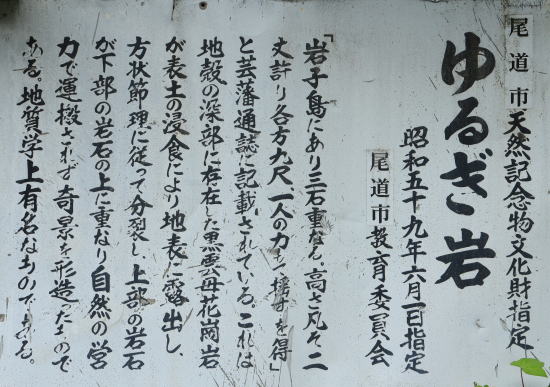 尾道市天然記念物文化財指定
ゆるぎ岩
昭和五十九年六月一日指定
尾道市教育委員会
「岩子島にあり三石重なる。高さ凡そ二
丈許り各方九尺、一人の力よく揺すを得」
と芸藩通誌に記載されている。これは
地殻の深部に存在した黒雲母花崗岩
が表土の浸食により地表に露出し、
方状節理に従って分裂し、上部の岩石
が下部の岩石の上に重なり自然の営
力で運搬されず奇景を形造ったもので
ある。地質学上有名なものである。